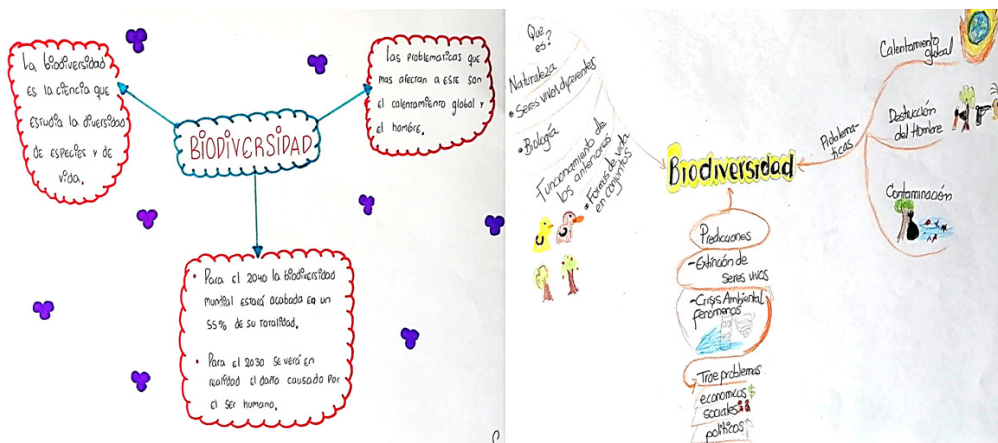 La biodiversidad
es la ciencia que
estudia la diversidad
de especies y de
vida.
Las problematicas que
mas afectan a este son
el calentamiento global y
el hombre.
BIODIVERSIDAD
• Para el 2040 la biodiversidad
mundial estará acabada en un
55% de su totalidad.
• Para el 2030 se verá en
realidad el daño causado por
el ser humano.
Que
es?
Naturaleza
• Seres vivos diferentes
• Biología
Funcionamiento de
los anteriores
• Formas de vida
en conjuntos
Biodiversidad
Problema-
ticas
Calentamiento
global
Destrucción
del Hombre
Contaminación
Predicciones
-Extinción de
Seres vivos
-Crisis Ambiental
fenómenos
Trae problemas
economicos $
sociales
políticos